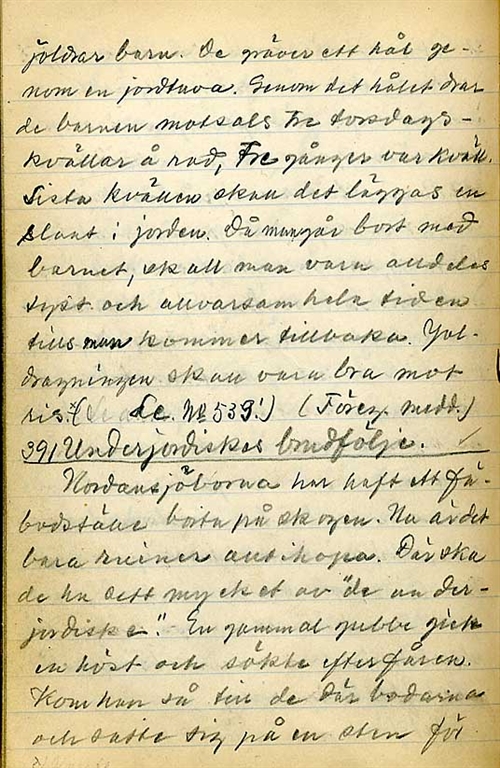 joldrar barn. De gräver ett hål ge-
nom en jordtuva. Genom det hålet drar
de barnen motsols tre torsdags-
kvällar å rad, tre gånger var kväll.
Sista kvällen skall det läggas en
slant i jorden. Då man går bort med
barnet, skall man vara alldeles
tyst och allvarsam hela tiden
tills man kommer tillbaka. Jol-
dragningen skall vara bra mot
ris. (Se No 539!) (Förez. medd.)
391 Underjordiskes brudfölje.
Nordansjöborna har haft ett få-
bodställe borta på skogen. Nu är det
bara ruiner alltihopa. Där ska
de ha sett mycket av "de under-
jordiske." En gammal gubbe gick
en höst och sökte efter fåren.
Kom han så till de där bodarna
och satte sig på en sten för